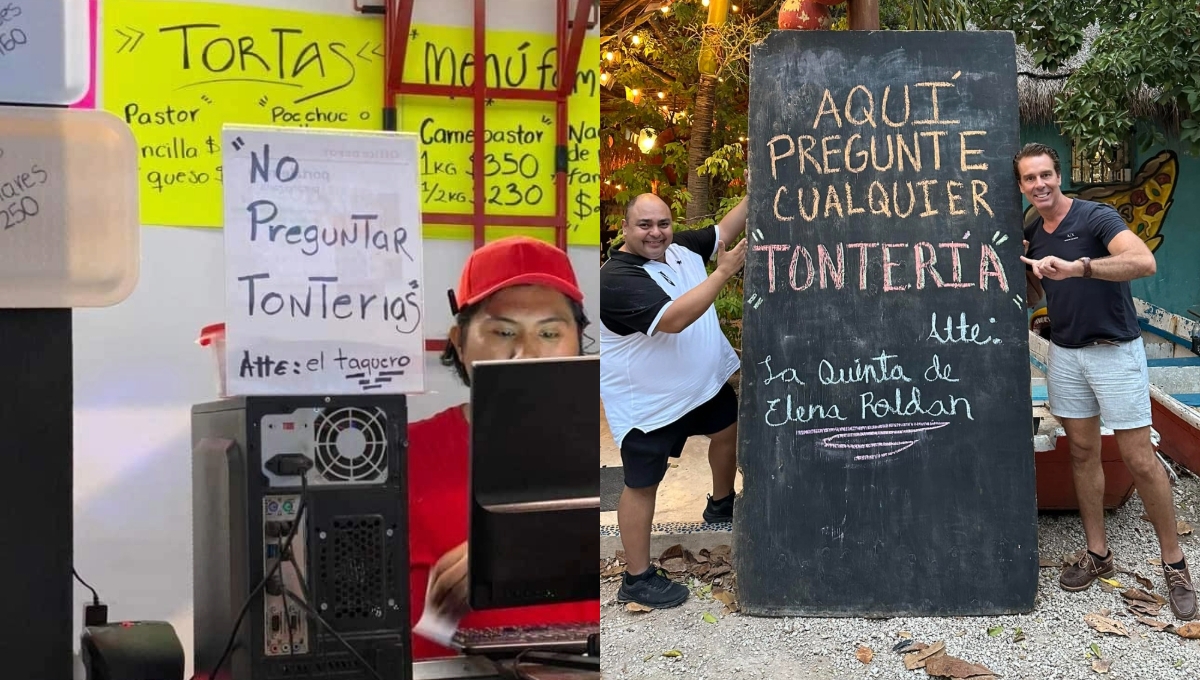 60
ares
250
>> TORTAS <<
Pastor "
ncilla $
queso $
" Pocchuc o
menú fam
Carne pastor "
1KG $350
1/2 KG $230
Na
de
fam
$
"NO
PregunTar
TonTerias"
Atte: el taquero
AQUÍ
PREGUNTE
CUALQUIER
"TONTERÍA"
Atte:
La Quinta de
Elena Roldan